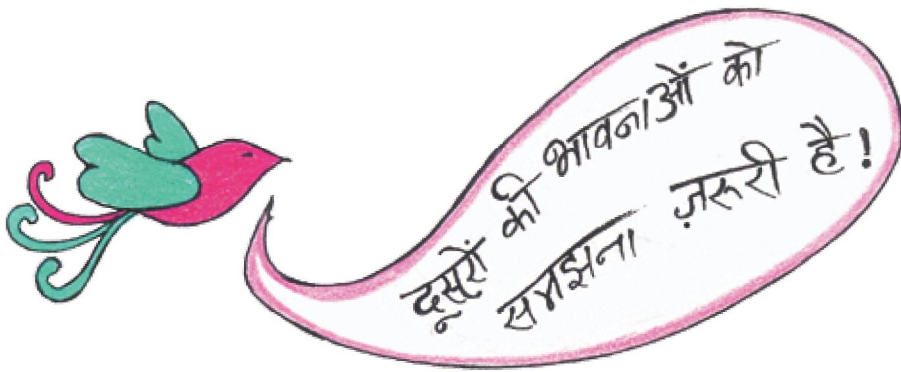 दूसरों की भावनाओं को
समझना ज़रूरी है!